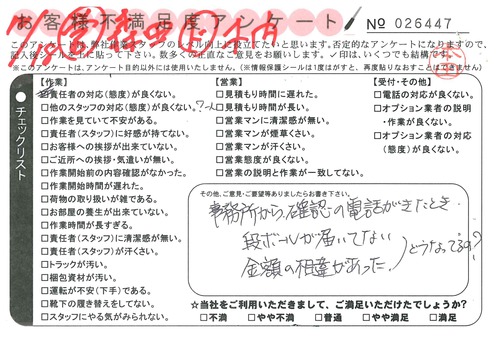 お客様不満足度アンケート
№ 026447
このアンケートは、弊社作業スタッフのレベル向上に役立てたいと思います。否定的なアンケートになりますので、
に入る程シールに上に貼って下さい。数多くの正直なご意見をお願いします。✓印は、いくつでも結構です。
※このアンケートは、アンケート目的以外には使用いたしません。(※情報保護シールは1度はがすと、再度貼りなおすことはできません)
チェックリスト
【作業】
責任者の対応(態度)が良くない。
□他のスタッフの対応(態度)が良くない。
□作業を見ていて不安がある。
□責任者(スタッフ)に好感が持てない。
□お客様への挨拶が出来ていない。
□ご近所への挨拶・気遣いが無い。
□作業開始前の内容確認がなかった。
□作業開始時間が遅れた。
□荷物の取り扱いが雑である。
□お部屋の養生が出来ていない。
□作業時間が長すぎる。
□責任者(スタッフ)に清潔感が無い。
□責任者(スタッフ)が汗くさい。
□トラックが汚い。
□梱包資材が汚い。
□運転が不安(下手)である。
□靴下の履き替えをしてない。
□スタッフにやる気がみられない。
【営業】
□見積もり時間に遅れた。
□見積もり時間が長い。
□営業マンに清潔感が無い。
□営業マンが煙草くさい。
□営業マンが汗くさい。
□営業態度が良くない。
□営業の説明と作業が一致してない。
【受付・その他】
□電話の対応が良くない。
□オプション業者の説明
・作業が良くない。
□オプション業者の対応
(態度)が良くない。
その他、ご意見・ご要望等ありましたらお書き下さい。
事務所から確認の電話がきたとき
段ボールが届いてない
金額の相違があった
どうなってるの?
☆当社をご利用いただきまして、ご満足いただけたでしょうか?
□不満 □やや不満 □普通 □やや満足 □満足